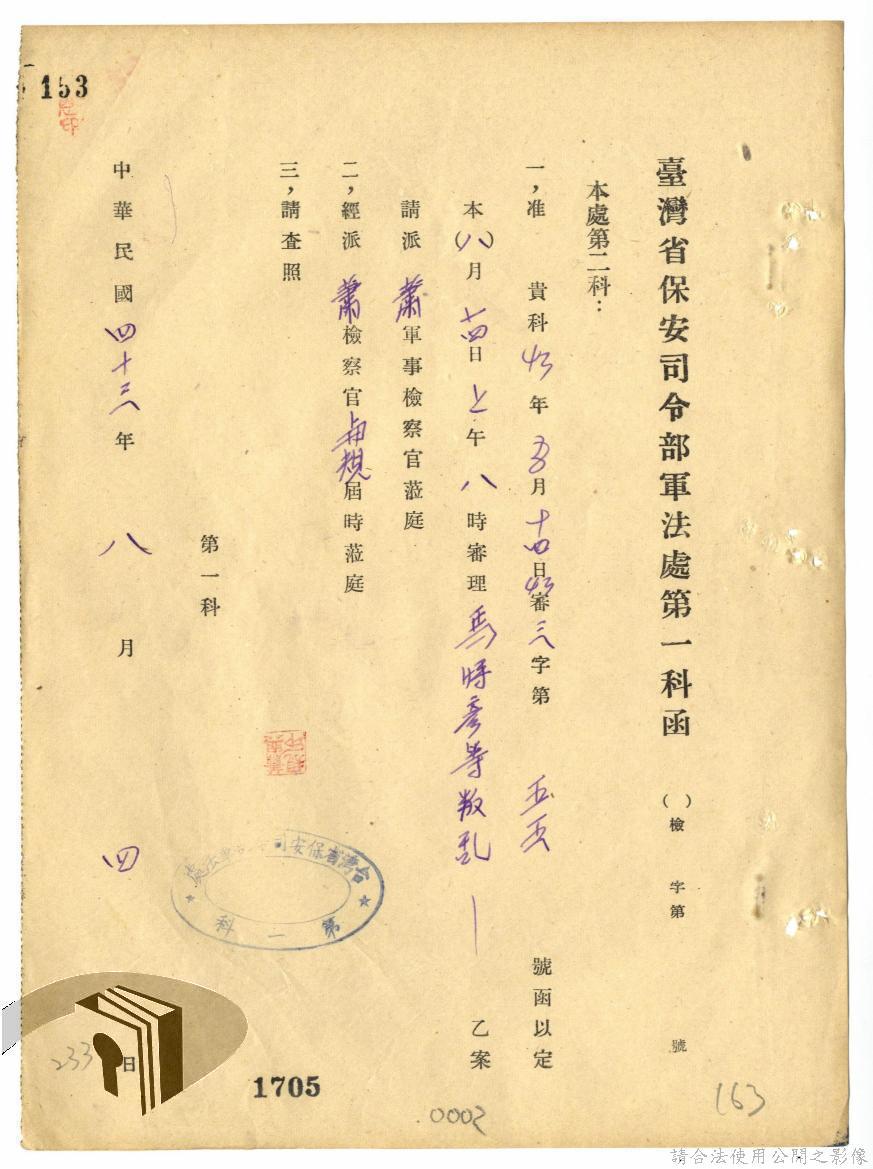 153
臺灣省保安司令部軍法處第一科函 ( )檢 字第 號
本處第二科：
一，准 貴科43年 月十四日審三字第 五五 號函以定
本(八)月十四日上午八時審理馬時彥等叛乱一乙案
請派蕭軍事檢察官蒞庭
二，經派蕭檢察官与規屆時蒞庭
三，請查照
第一科
台灣省保安司令部軍法處
第一科
中華民國四十三年八月四日
233
1705
0002
163
請合法使用公開之影像